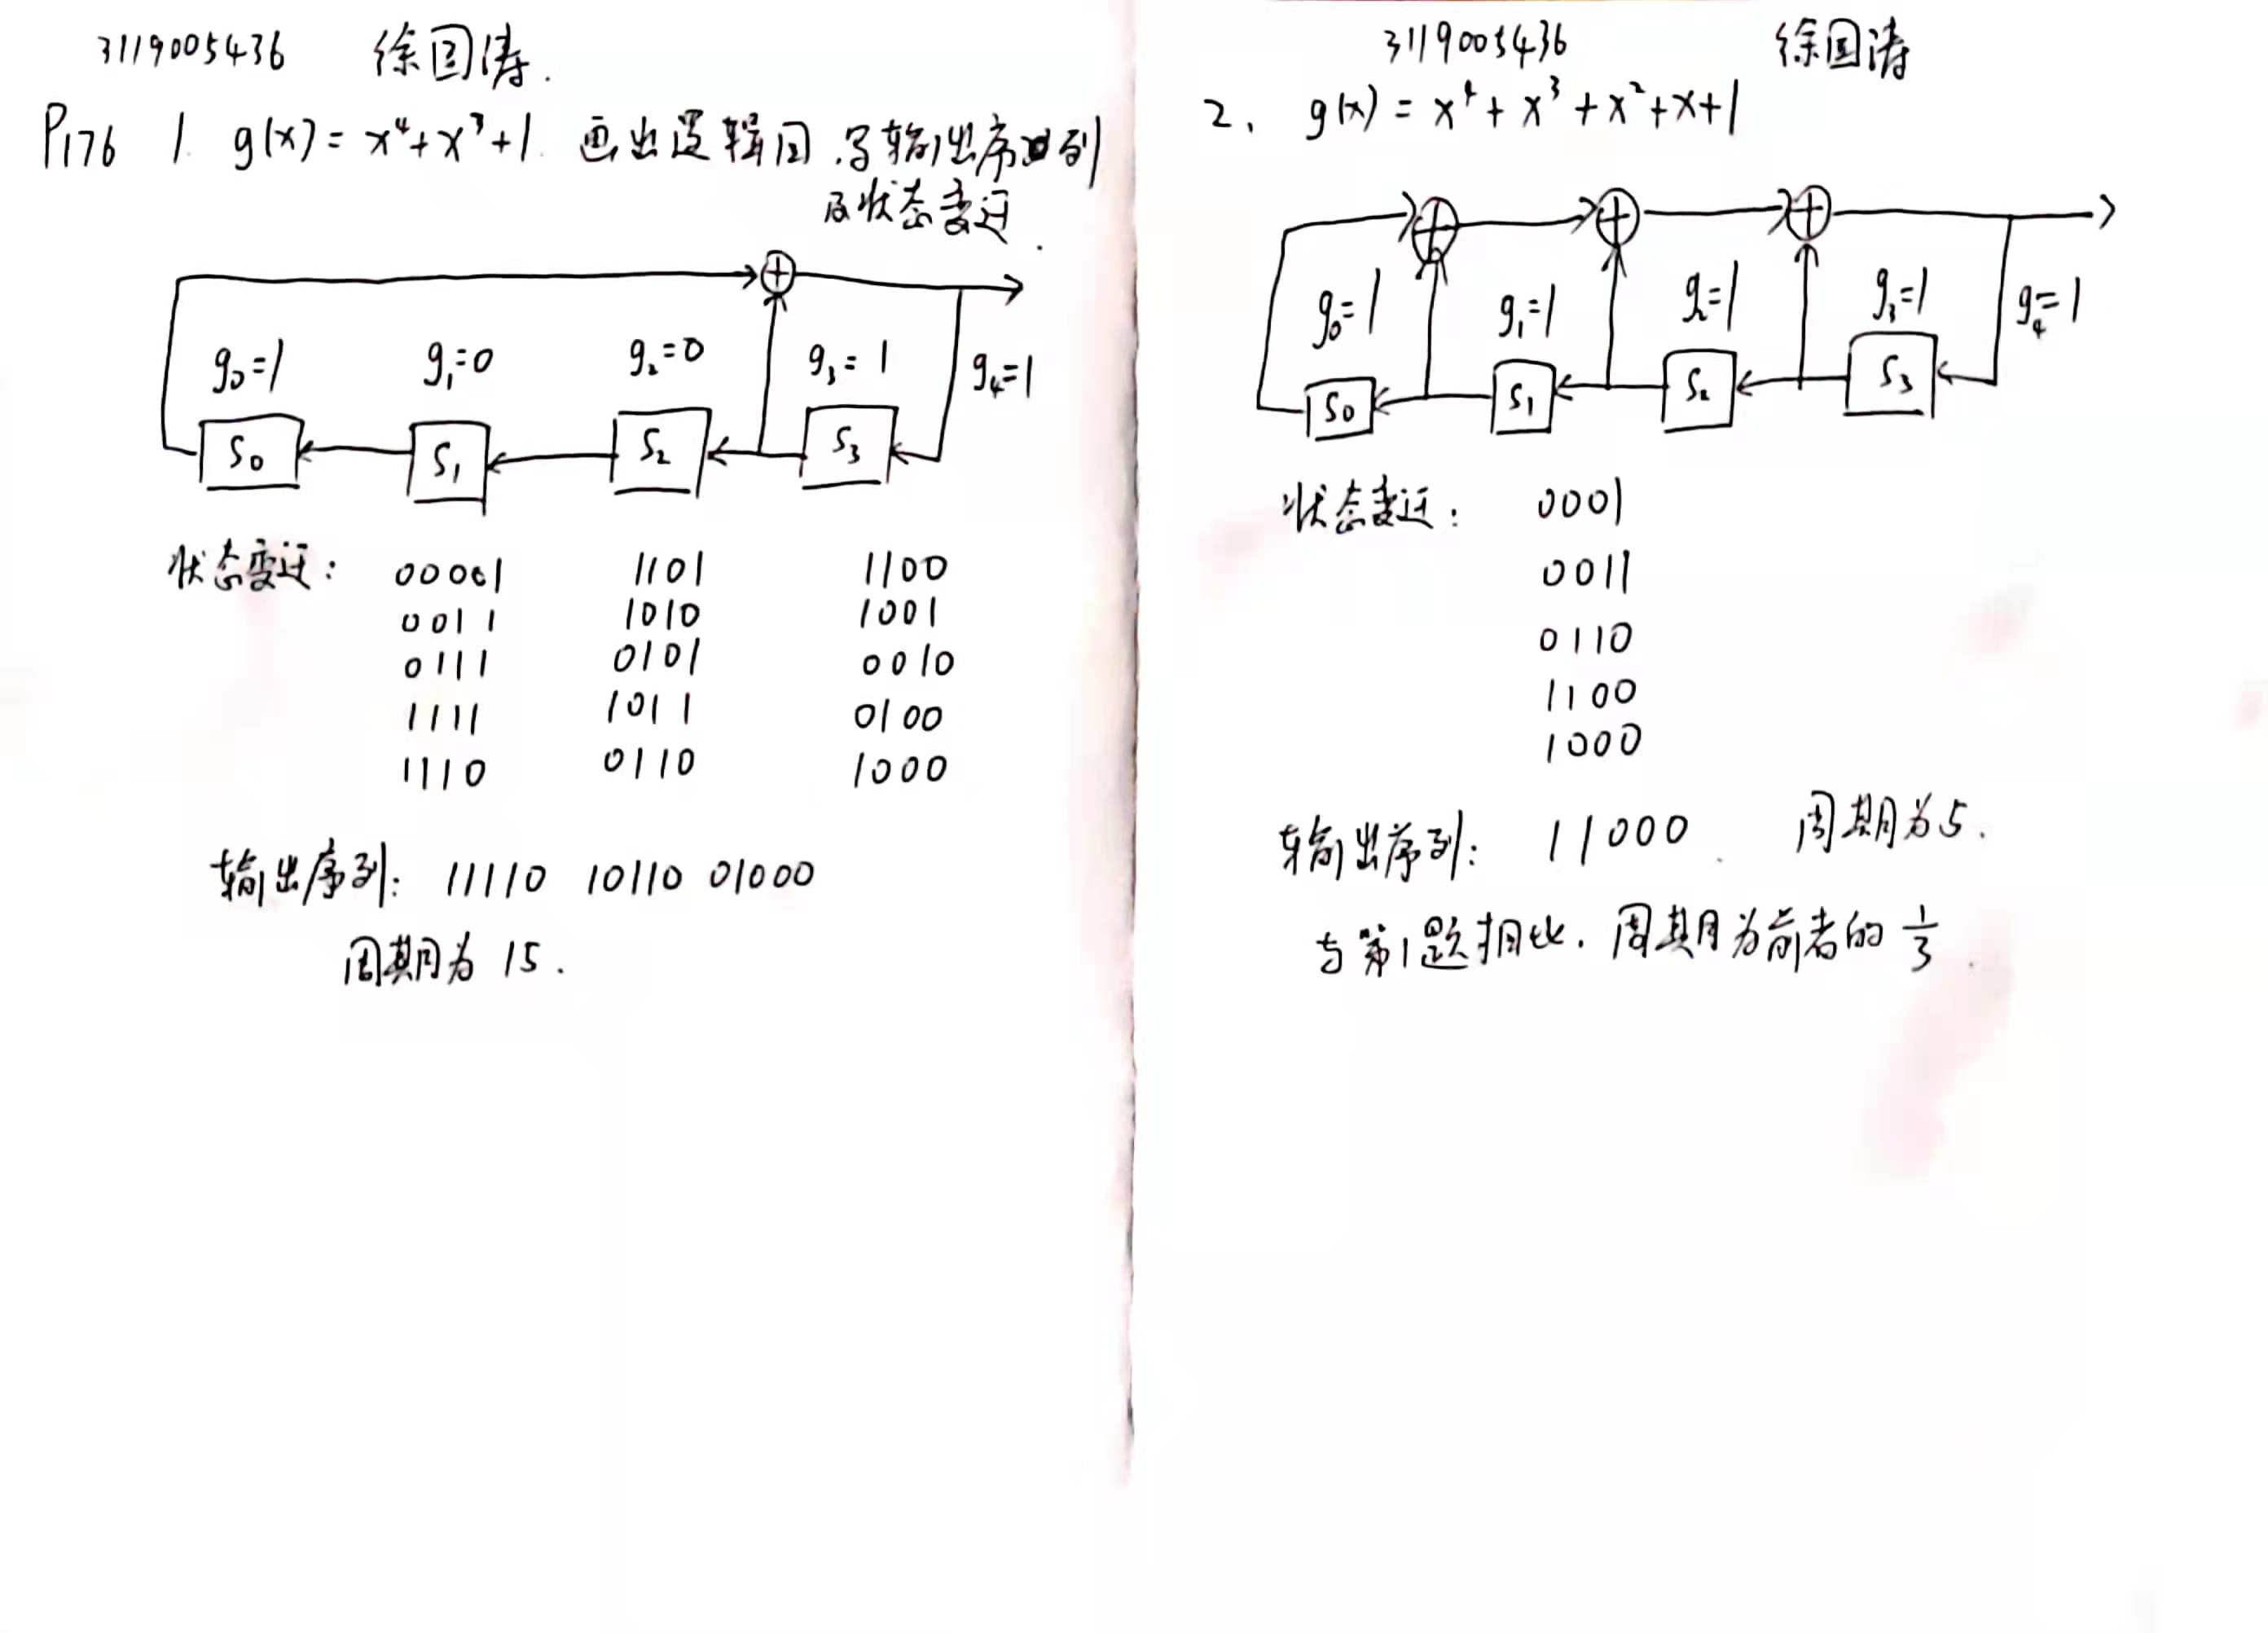 3119005436 徐国涛.
P176 1. g(x) = x⁴+x³+1. 画出逻辑图.写输出序列
及状态变迁.
g₀=1 g₁=0 g₂=0 g₃=1 g₄=1
S₀ S₁ S₂ S₃
状态变迁: 00001 1101 1100
0011 1010 1001
0111 0101 0010
1111 1011 0100
1110 0110 1000
输出序列: 11110 10110 01000
周期为 15.
3119005436 徐国涛
2. g(x) = x⁴+x³+x²+x+1
g₀=1 g₁=1 g₂=1 g₃=1 g₄=1
S₀ S₁ S₂ S₃
状态变迁: 0001
0011
0110
1100
1000
输出序列: 11000. 周期为5.
与第1题相比. 周期为前者的 1/3.